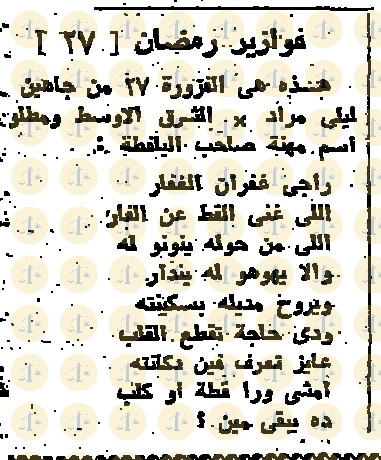 فوازير رمضان [ ٢٧ ]
هذه هى الفزورة ٢٧ من جاهين
ليلى مراد × الشرق الاوسط ومطلو
اسم مهنة صاحب اليافطة :
راجى غفران الغفار
اللى غنى القط عن الفار
اللى من حوله ينونو له
والا يهوهو له يندار
ويروح مديله بسكينته
ودى حاجة تقطع القلب
عايز تعرف فين دكانته
امشى ورا قطة او كلب
ده يبقى مين ؟